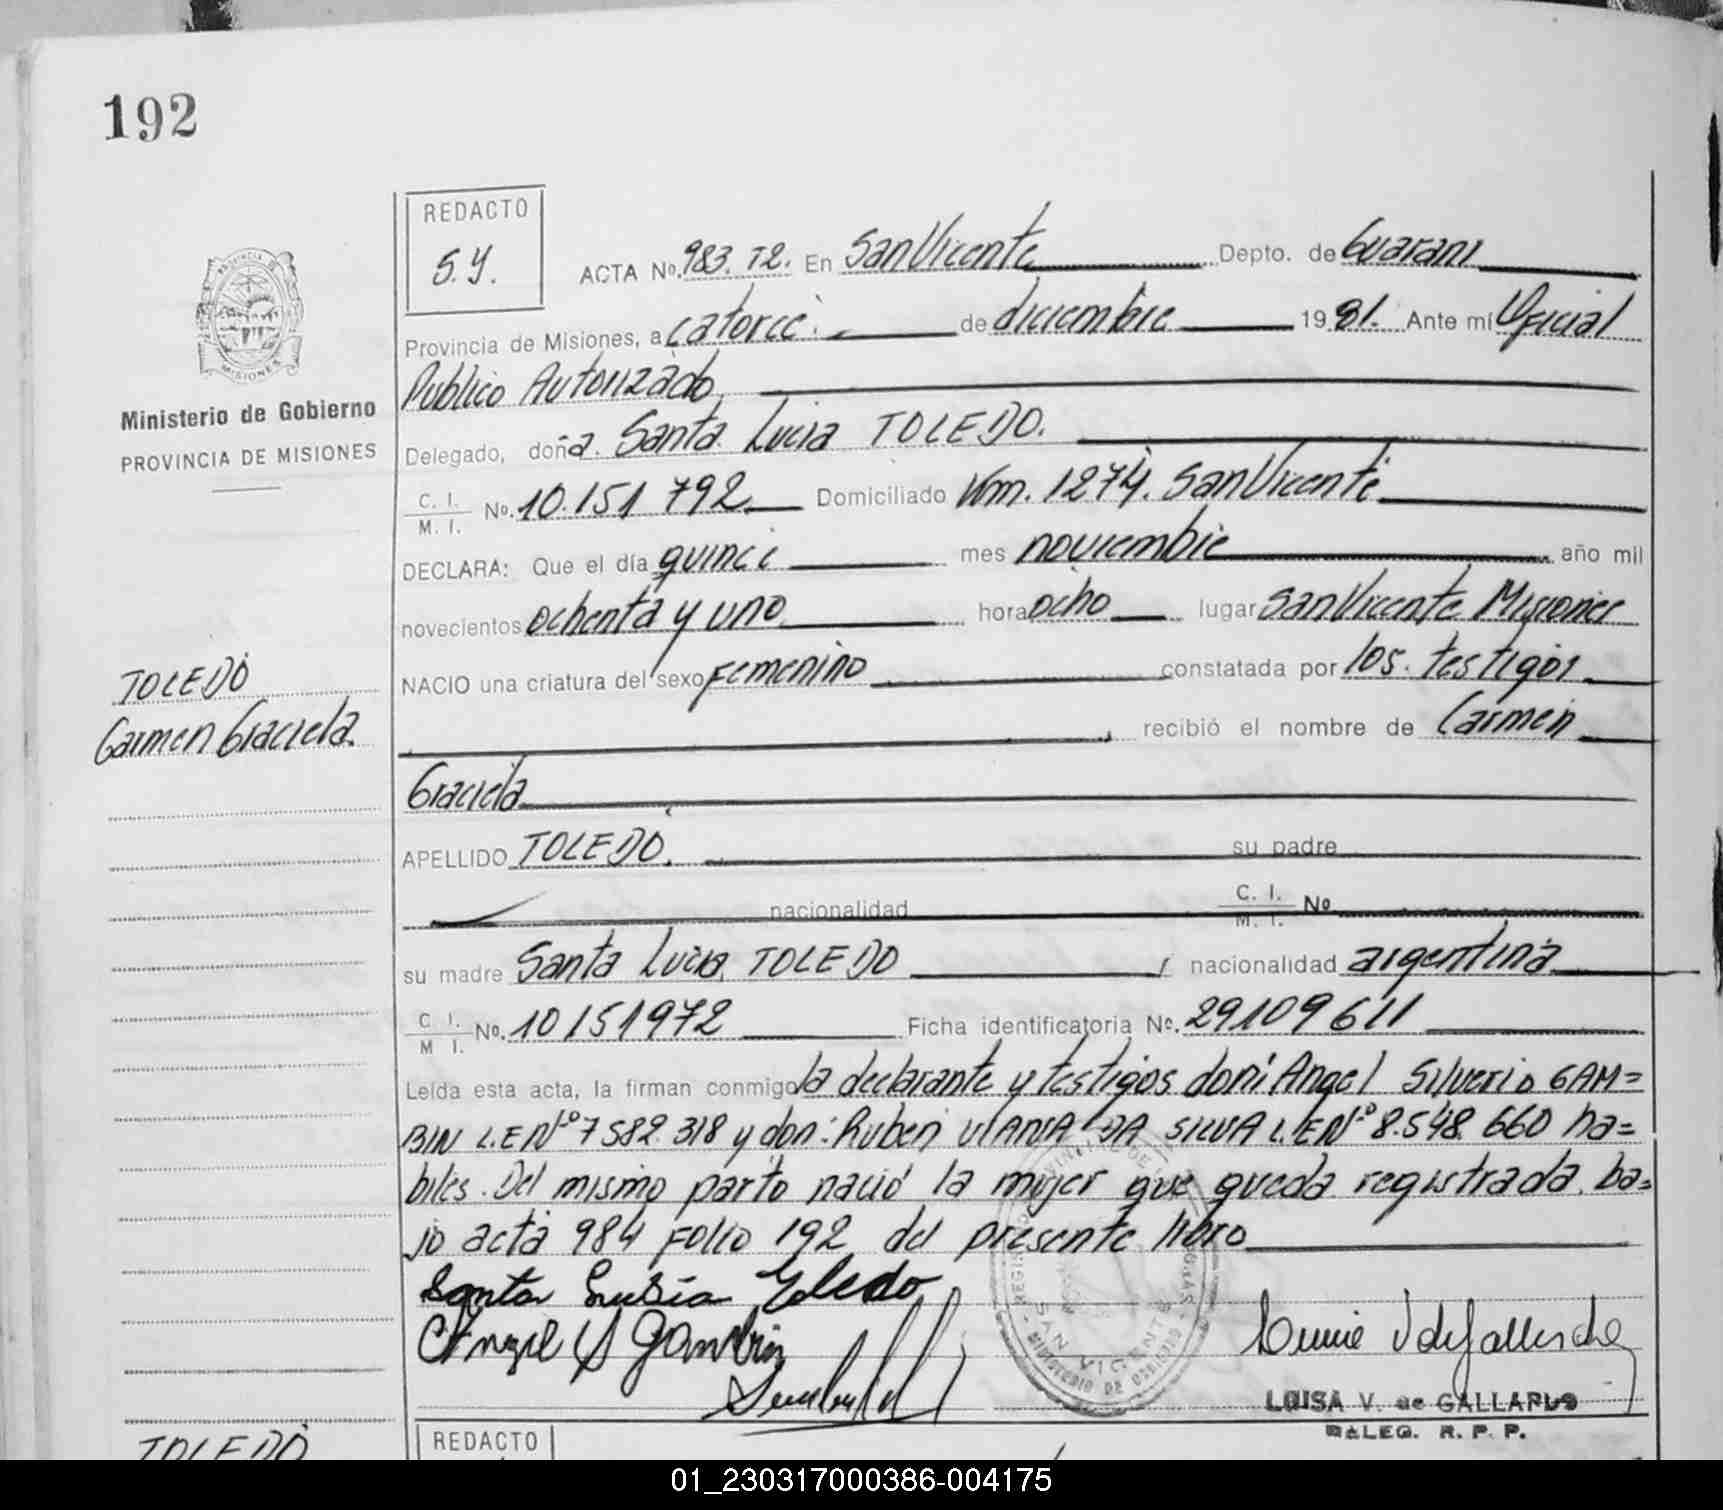 192
REDACTO
S.Y.
ACTA No. 983. T2. En San Vicente Depto. de Guarani
Provincia de Misiones, a catorce. de diciembre 1981. Ante mí Oficial
Publico Autorizado
Delegado, doña. Santa Lucia TOLEDO.
C. I. M. I. No. 10.151 792 Domiciliado Km. 1274. San Vicente
DECLARA: Que el día quince mes noviembre año mil
novecientos ochenta y uno hora ocho lugar San Vicente Misiones
NACIO una criatura del sexo Femenino constatada por los. testigos
recibió el nombre de Carmen
Graciela
APELLIDO TOLEDO. su padre
nacionalidad C. I. M. I. No
su madre Santa Lucia TOLEDO nacionalidad argentina
C I. M I. No. 10151972 Ficha identificatoria No. 29109611
Leída esta acta, la firman conmigo la declarante y testigos don: Angel Silverio GAM=
BIN L.E Nº 7582.318 y don: Ruben VIANA DA SILVA L.E Nº 8.548.660 ha=
biles. Del mismo parto nació la mujer que queda registrada. ba=
jo acta 984 Folio 192 del presente libro
Santa Lusia Toledo
Angel S Gambin
LUISA V. de GALLARDO
DELEG. R. P. P.
PROVINCIA DE
MISIONES
Ministerio de Gobierno
PROVINCIA DE MISIONES
TOLEDO
Carmen Graciela.
SAN VICENTE
MINISTERIO DE GOBIERNO
TOLEDO
REDACTO
01_230317000386-004175